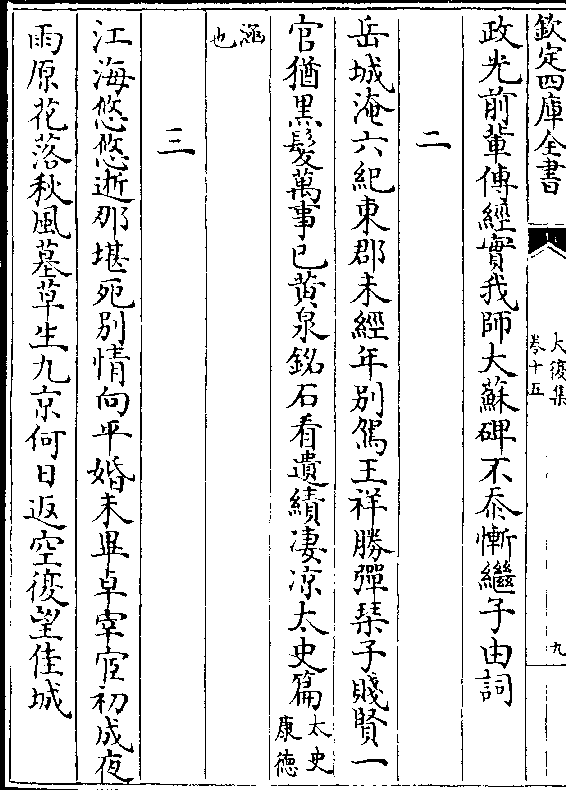 欽定四庫全書
大復集
卷十五
九
政光前輩傳經實我師大蘇碑不忝慚繼子由詞
二
岳城淹六紀東郡未經年別駕王祥勝彈琴子賤賢一
官猶黑髮萬事已黄泉銘石看遺績凄凉太史篇太史
康德
涵
也
三
江海悠悠逝那堪死別情向平婚未畢卓宰宦初成夜
雨原花落秋風墓草生九京何日返空復望佳城